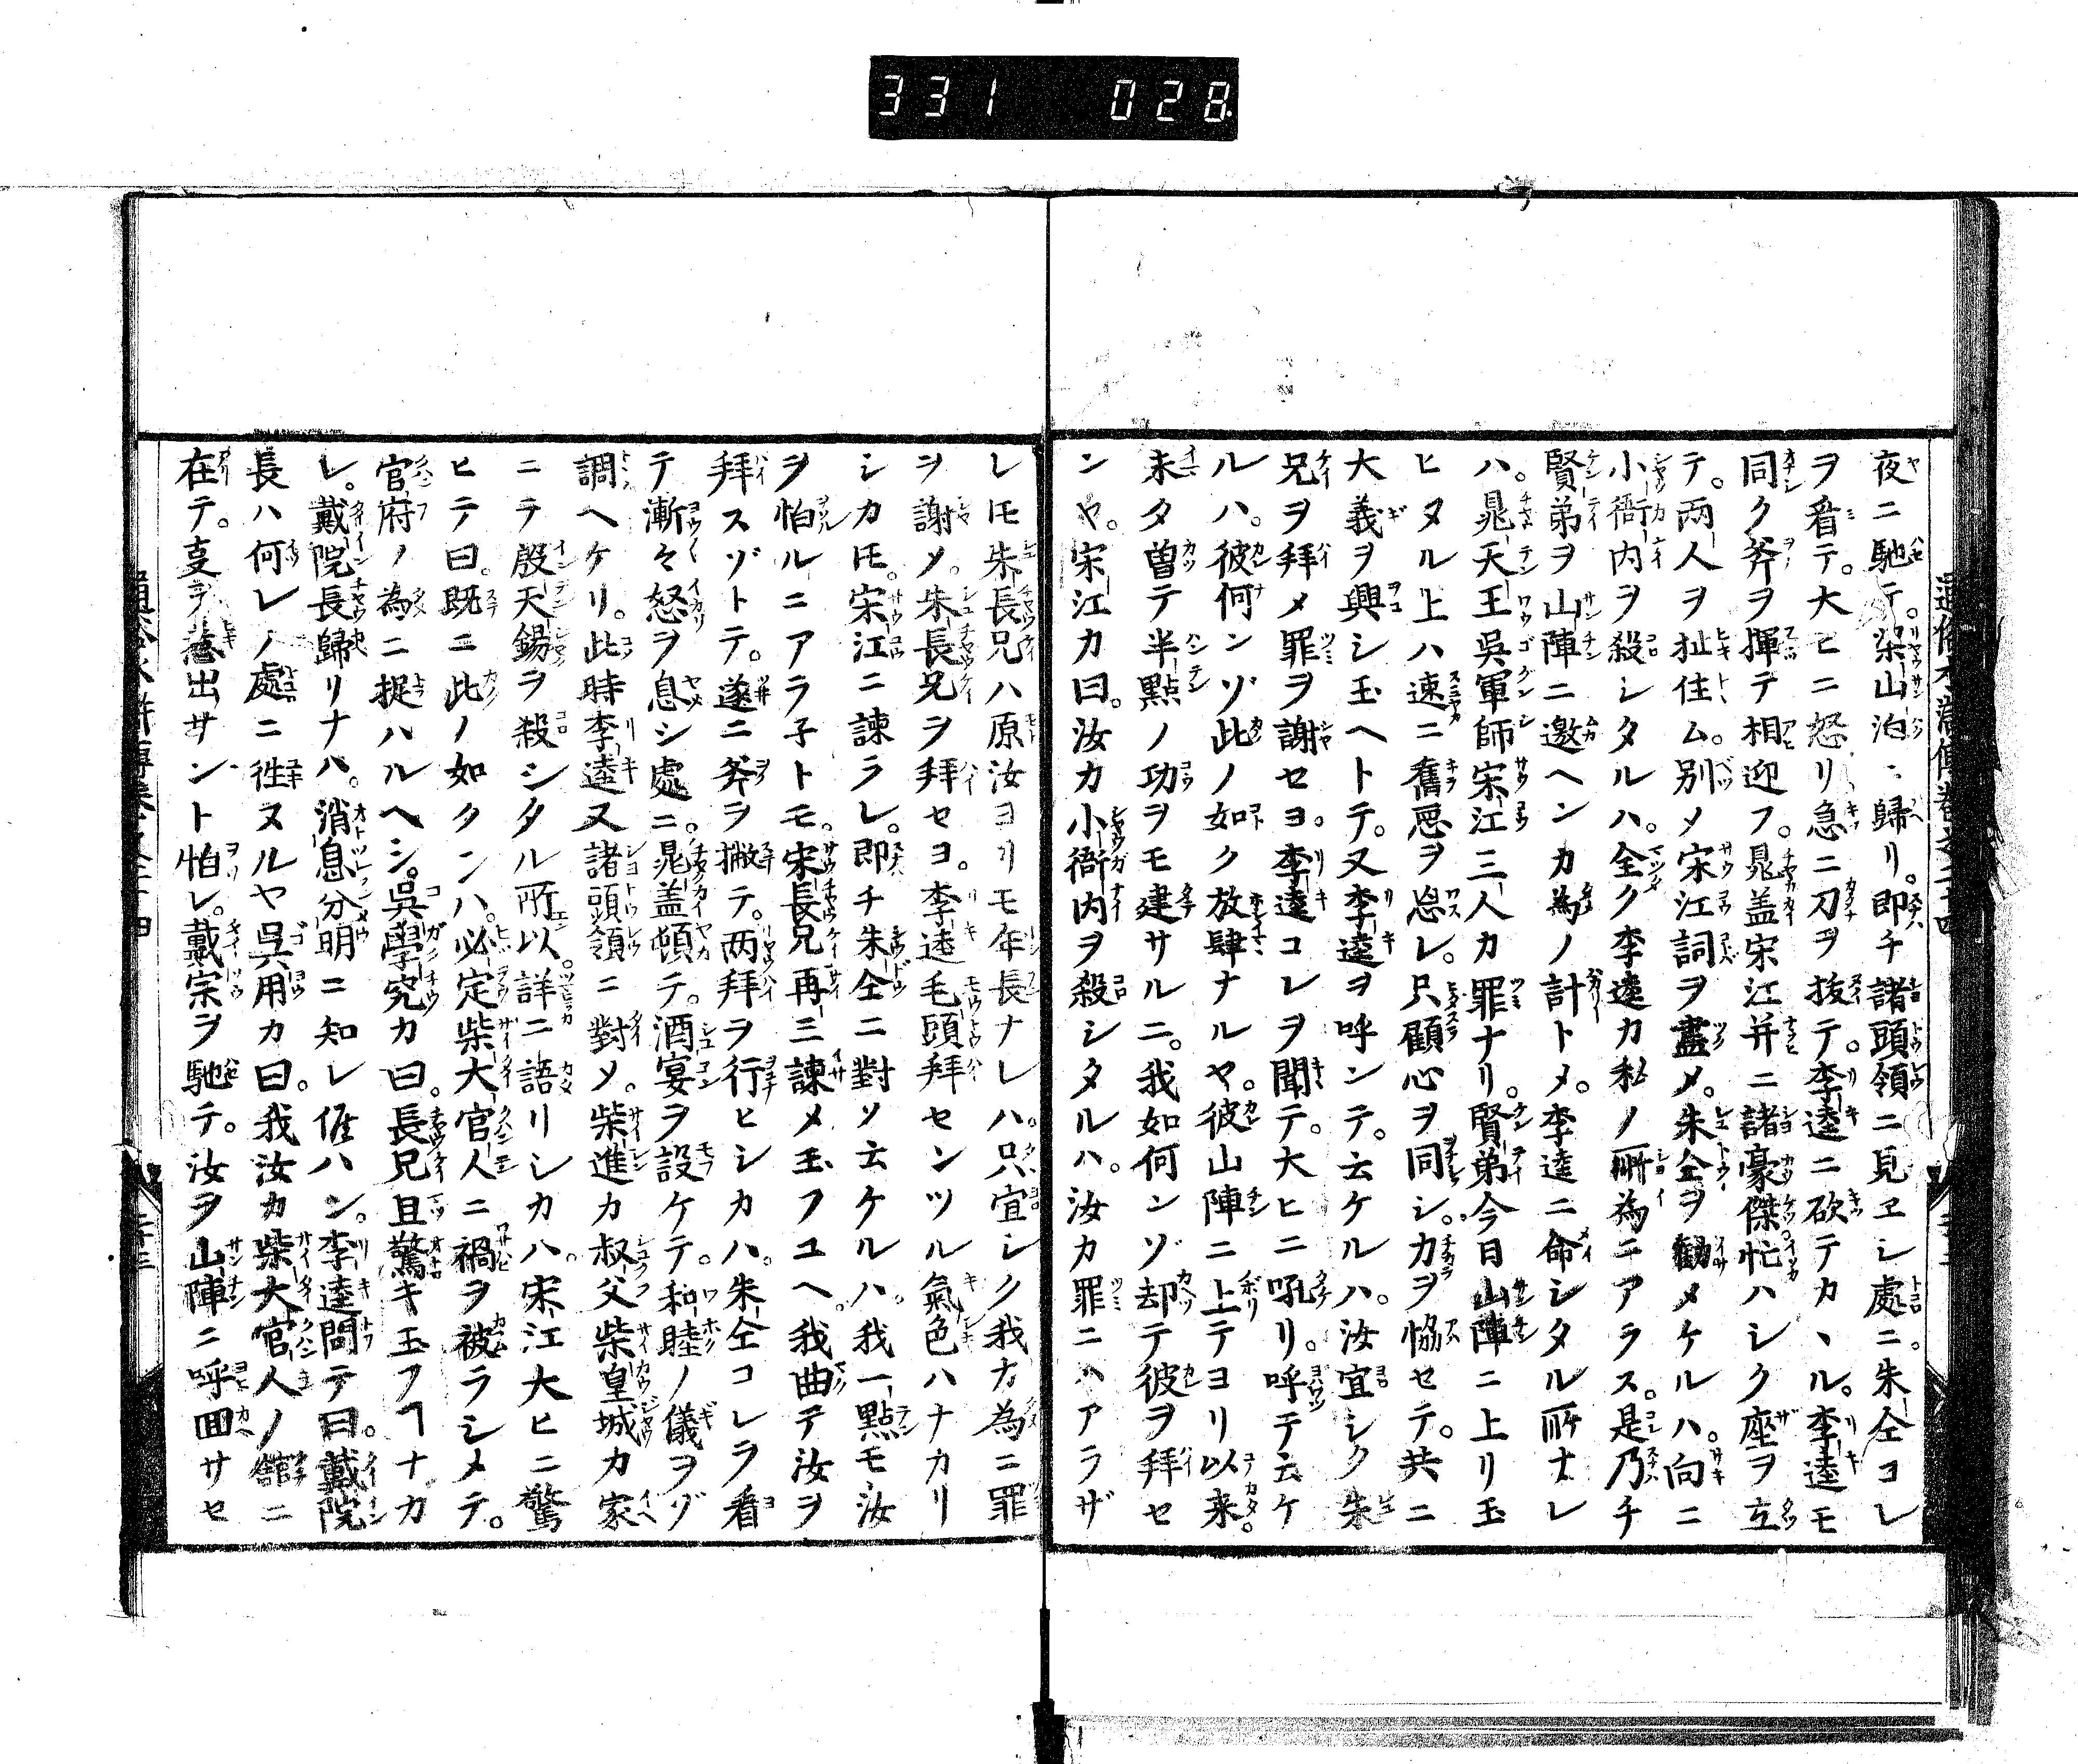 331 028
夜ニ馳テ。梁山泊ニ歸リ。即チ諸頭領ニ見ヱシ處ニ。朱仝コレ
ヲ看テ。大ヒニ怒リ急ニ刀ヲ拔テ。李逵ニ砍テカヽル。李逵モ
同ク斧ヲ揮テ相迎フ。晁盖宋江并ニ諸豪傑。忙ハシク座ヲ立
テ。兩人ヲ扯住ム。別メ宋江詞ヲ盡メ。朱仝ヲ勸メケルハ。向ニ
小衙内ヲ殺シタルハ。全ク李逵カ私ノ所為ニアラス。是乃チ
賢弟ヲ山陣ニ邀ヘンカ為ノ計トメ。李逵ニ命シタル所ナレ
ハ。晁天王吳軍師宋江三人カ罪ナリ。賢弟今日山陣ニ上リ玉
ヒタル上ハ速ニ舊惡ヲ忘レ。只顧心ヲ同シ。力ヲ恊セテ。共ニ
大義ヲ興シ玉ヘトテ。又李逵ヲ呼ンテ。云ケルハ。汝宜シク朱
兄ヲ拜メ罪ヲ謝セヨ。李逵コレヲ聞テ。大ヒニ吼リ。呼テ云ケ
ルハ。彼何ンゾ此ノ如ク放肆ナルヤ。彼山陣ニ上テヨリ以来。
未タ曽テ半點ノ功ヲモ建サルニ。我如何ンゾ却テ彼ヲ拜セ
ンヤ。宋江カ曰。汝カ小衙内ヲ殺シタルハ。汝カ罪ニハアラザ
レ𪜈朱長兄ハ原汝ヨリモ年長ナレハ。只宜シク我カ為ニ罪
ヲ謝メ。朱長兄ヲ拜セヨ。李逵毛頭拜センツル氣色ハナカリ
シカ𪜈。宋江ニ諫ラレ。即チ朱仝ニ對ソ云ケルハ。我一點モ汝
ヲ怕ルニアラ子トモ。宋長兄再三諫メ玉フユヘ。我曲テ汝ヲ
拜スゾトテ。遂ニ斧ヲ撇テ。两拜ヲ行ヒシカハ。朱仝コレヲ看
テ漸々怒ヲ息シ處ニ。晁盖頓テ。酒宴ヲ設ケテ。和睦ノ儀ヲゾ
調ヘケリ。此時李逵又諸頭領ニ對メ。柴進カ叔父柴皇城カ家
ニテ殷天錫ヲ殺シタル所以。詳ニ語リシカハ。宋江大ヒニ驚
ヒテ曰。既ニ此ノ如クンハ。必定柴大官人ニ禍ヲ被ラシメテ。
官府ノ為ニ捉ハルヘシ。吳學究カ曰。長兄且驚キ玉フヿナカ
レ。戴院長歸リナハ。消息分明ニ知レ候ハン。李逵問テ曰。戴院
長ハ何レノ處ニ徃ヌルヤ吳用カ曰。我汝カ柴大官人ノ舘ニ
在テ。支ヲ惹出サント怕レ。戴宗ヲ馳テ。汝ヲ山陣ニ呼囬サセ